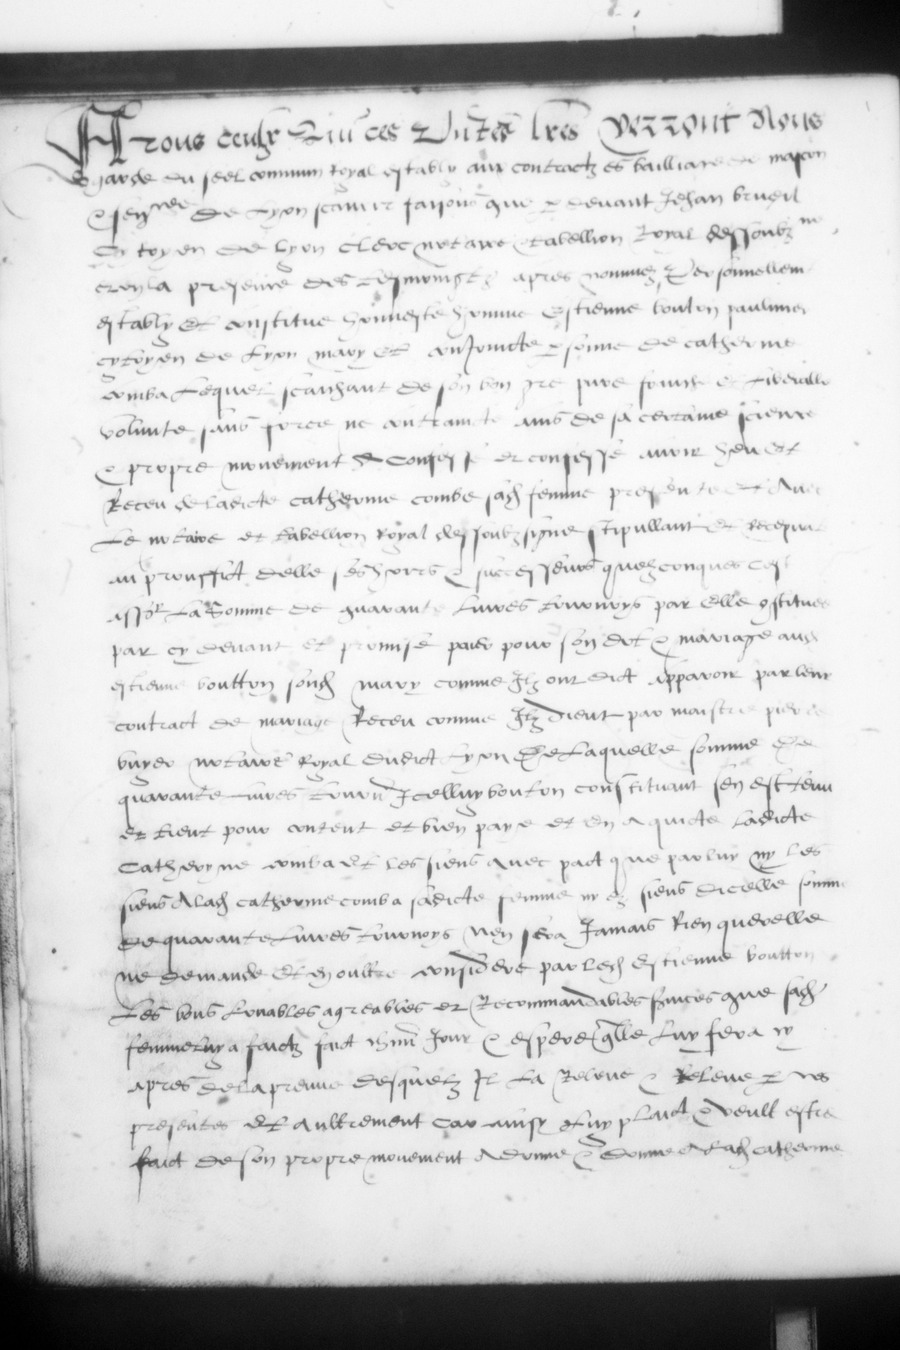 A tous ceulx qui ces pntes lres verront Nous
garde du seel commun royal estably aux contractz es bailliaige de mascon
& sen de Lyon scavoir faisons que p devant Jehan brueil
Cytoyen de lyon clerc notaire & tabellion Royal dessoubz ne
en la presence des tesmoingtz apres nommez personnellement
estably et constitue honneste homme Estienne bouton paulmier
cytoyen de Lyon mary et conjoincte psonne de catherine
comba Lequel scaichant de son bon gre pure franche et liberalle
volunte sans force ne contraincte ains de sa certaine science
& propre mouvement A confesse et confesse avoir heu et
Receu de ladicte catherine combe sad femme presente et Avec
Le notaire et tabellion royal dessoubzsigne stipullant et recepvant
au prouffict delle ses hoirs & successeurs quelzconques Cest
assr La Somme de quarante Livres tournoys par elle constituee
par cy devant et promise paier pour son dot & mariage aud
estienne boutton sond mary comme Ilz ont dict apparoir par leur
contract de mariage Receu comme Ilz dient par maistre pierre
buyer notaire Royal dudict Lyon De Laquelle somme De
quarante Livres tourn Icelluy bouton constituant sen est tenu
et tient pour content et bien paye et en a quicte Ladicte
Catheryne comba et les siens avec pact que par luy ny les
siens A lad catherine comba sadicte femme ny es siens dicelle somme
De quarante Livres tournoys nen sera Jamais Rien querelle
ne demande Et en oultre considere par led estienne boutton
Les bons Louables agreables et Recommandables services que sad
femme luy a faictz faict Jour & espere qlle luy fera cy
apres de la preuve desquelz Il La Releve & Releve p ces
presentes et aultrement Car ainsy Luy plaict & veult estre
faict de son propre mouvement A donne & donne A lad catherine